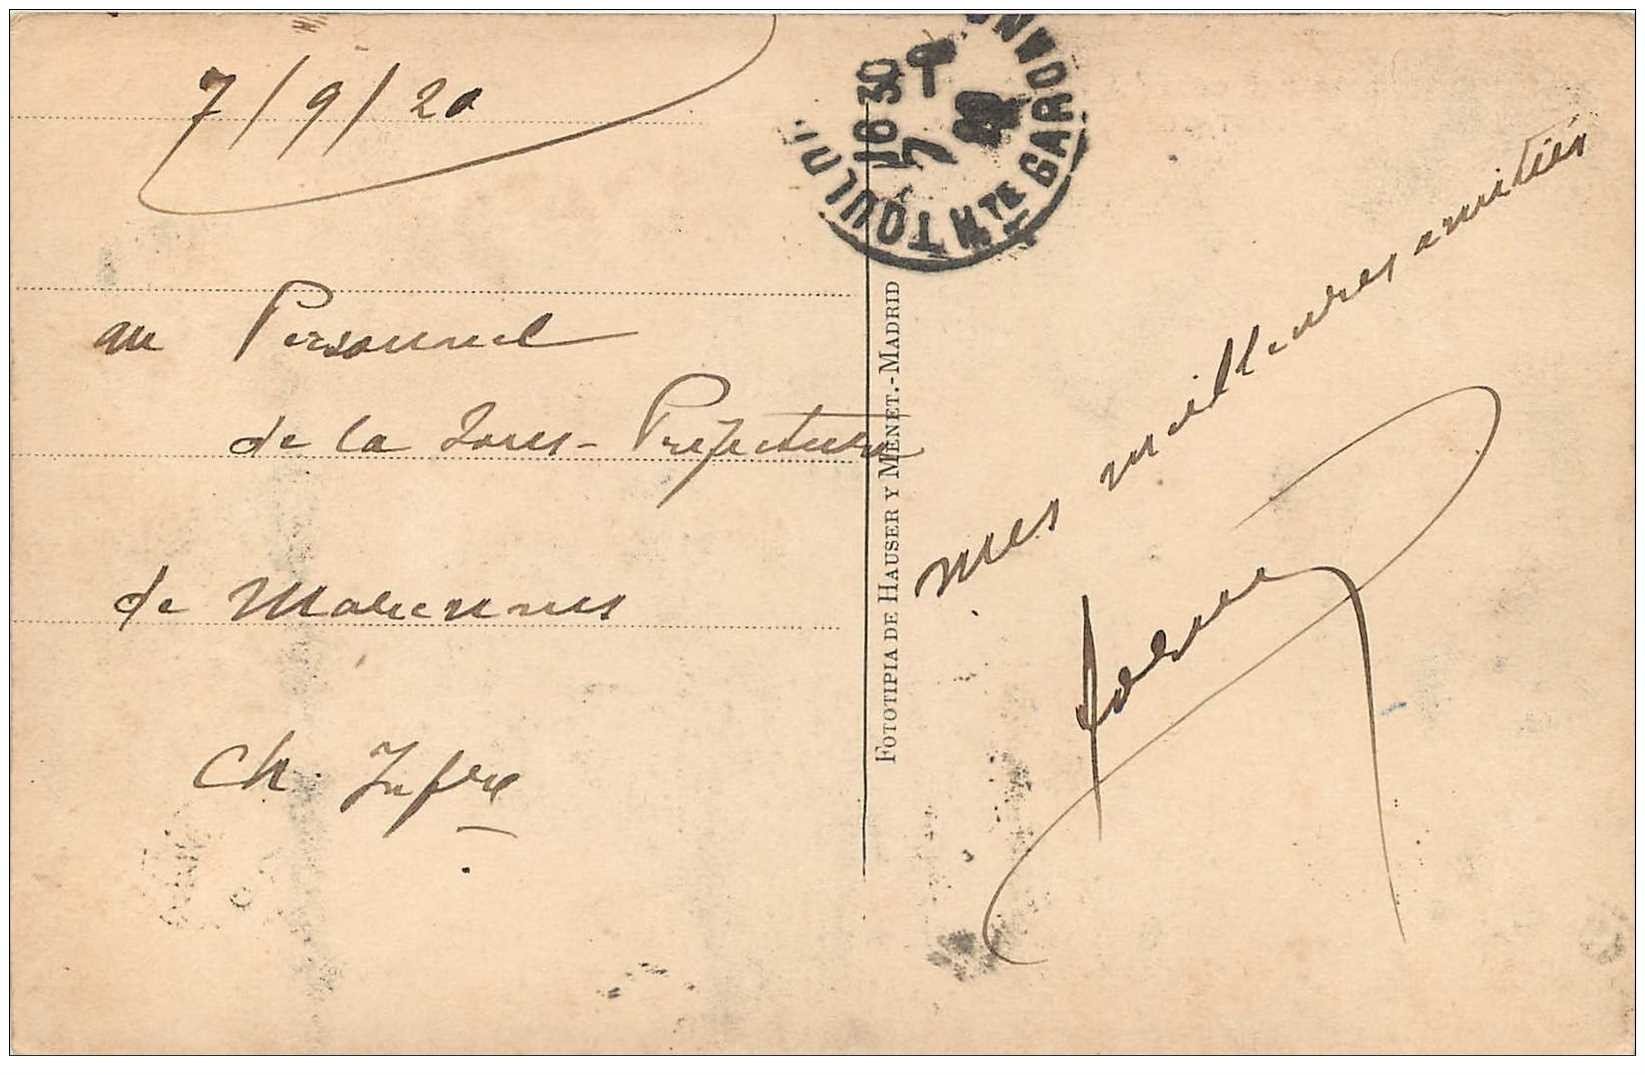 7/9/20
au Personnel
de la Sous-Préfecture
de Marennes
Ch. Infre
FOTOTIPIA DE HAUSER Y MENET.-MADRID
16 30
7 - 9
20
HTE GARONNE
mes meilleures amitiés